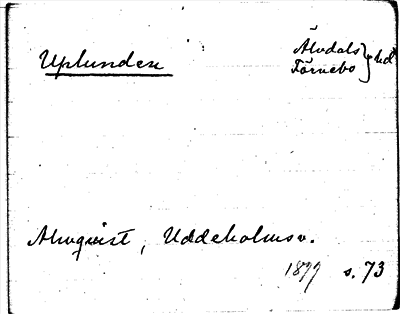 Uplunden
Älvdals
Färnebo } hd
Almquist, Uddeholmsv.
1899 s. 73